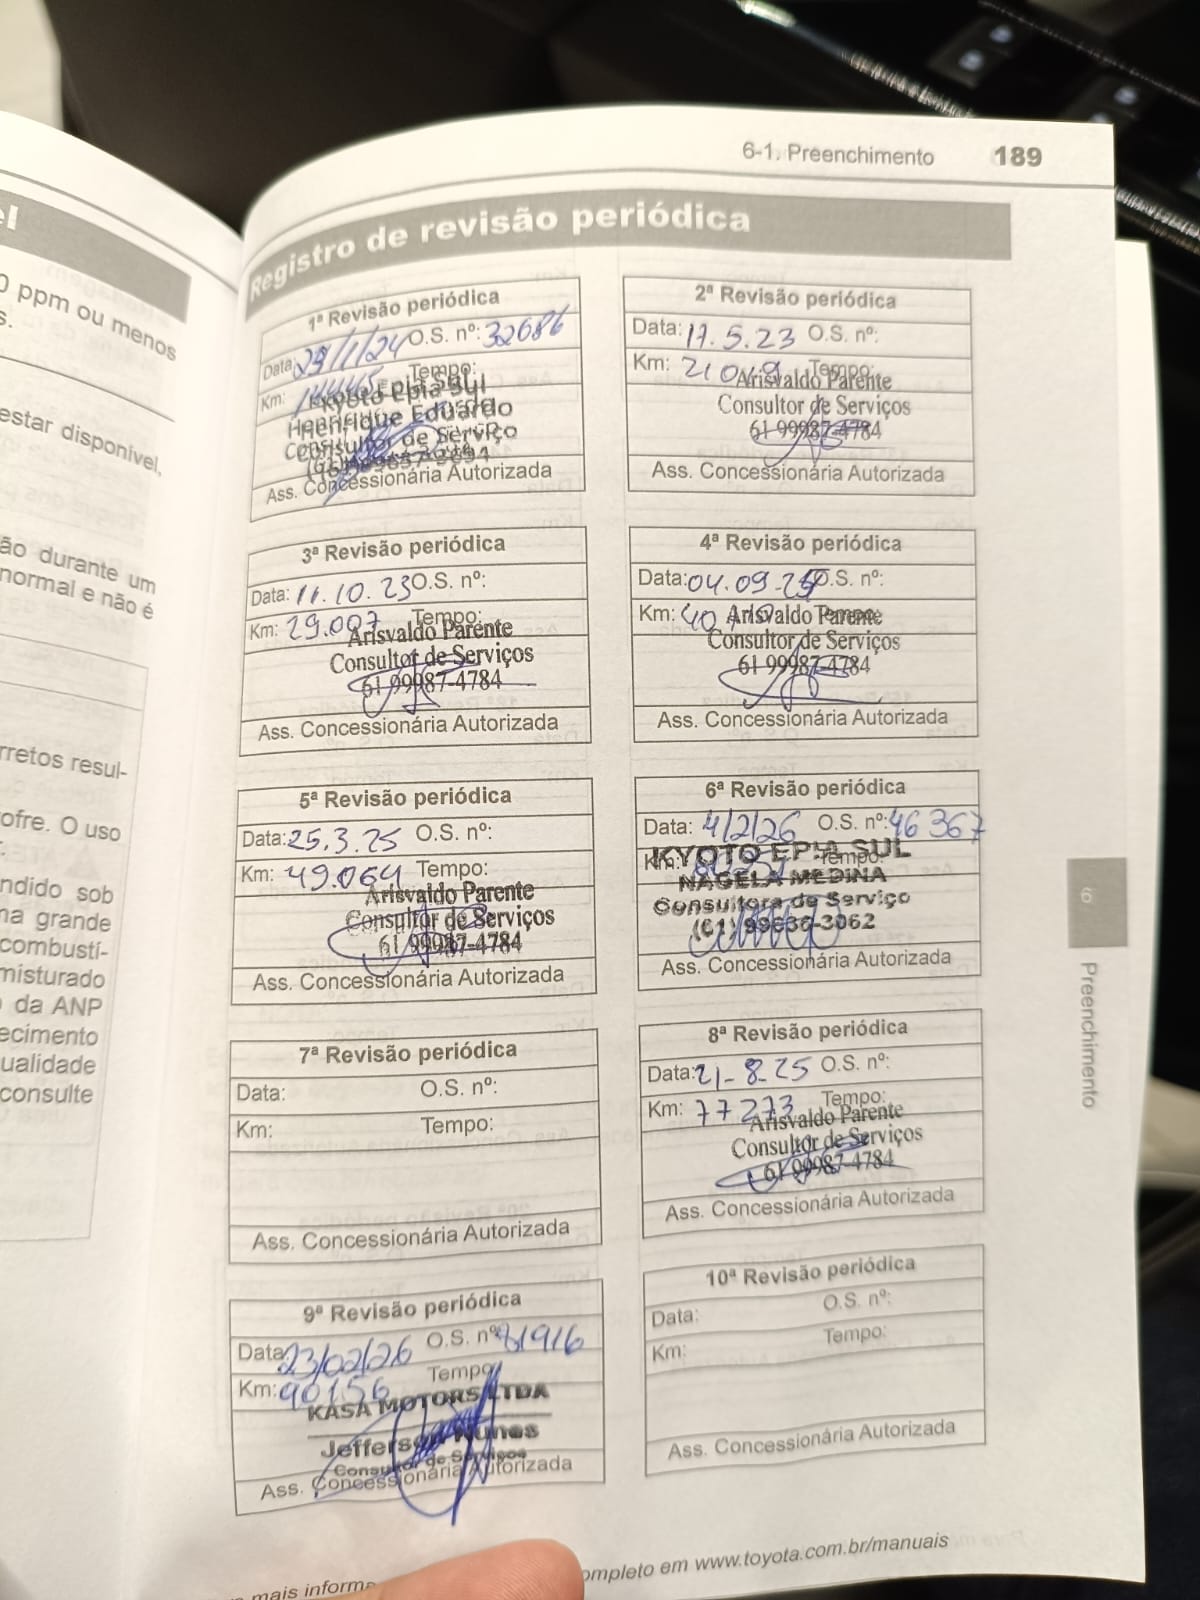 el
0 ppm ou menos
s.
estar disponível,
ão durante um
normal e não é
rretos resul-
ofre. O uso
ndido sob
na grande
combustí-
misturado
o da ANP
ecimento
ualidade
consulte
6-1. Preenchimento 189
Registro de revisão periódica
1ª Revisão periódica
Data: /1/24 O.S. nº: 32686
Km: Tempo:
Kyoto Epia Sul
Henrique Eduardo
Consultor de Serviço
Ass. Concessionária Autorizada
2ª Revisão periódica
Data: 17.5.23 O.S. nº:
Km: 21049 Tempo:
Arisvaldo Parente
Consultor de Serviços
61 99987-4784
Ass. Concessionária Autorizada
3ª Revisão periódica
Data: 11.10.23 O.S. nº:
Km: 29.007 Tempo:
Arisvaldo Parente
Consultor de Serviços
61 99987-4784
Ass. Concessionária Autorizada
4ª Revisão periódica
Data: 04.09. O.S. nº:
Km: Tempo:
Arisvaldo Parente
Consultor de Serviços
61 99987-4784
Ass. Concessionária Autorizada
5ª Revisão periódica
Data: 25.3.25 O.S. nº:
Km: 49.064 Tempo:
Arisvaldo Parente
Consultor de Serviços
61 99987-4784
Ass. Concessionária Autorizada
6ª Revisão periódica
Data: 4/2/26 O.S. nº: 46367
Km: Tempo:
KYOTO EPIA SUL
NAGELA MEDINA
Consultora de Serviço
(61) 99636-3062
Ass. Concessionária Autorizada
7ª Revisão periódica
Data: O.S. nº:
Km: Tempo:
Ass. Concessionária Autorizada
8ª Revisão periódica
Data: 21-8-25 O.S. nº:
Km: 77273 Tempo:
Arisvaldo Parente
Consultor de Serviços
61 99987-4784
Ass. Concessionária Autorizada
9ª Revisão periódica
Data: 23/02/26 O.S. nº: 81916
Km: 90156 Tempo:
KASA MOTORS LTDA
Jefferson Nunes
Consultor de Serviços
Ass. Concessionária Autorizada
10ª Revisão periódica
Data: O.S. nº:
Km: Tempo:
Ass. Concessionária Autorizada
6
Preenchimento
mais informa
ompleto em www.toyota.com.br/manuais